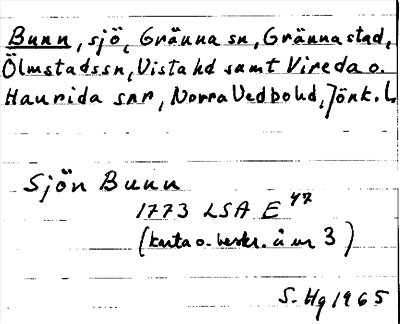 Bunn, sjö, Gränna sn, Gränna stad,
Ölmstads sn, Vista hd samt Vireda o.
Haurida snr, Norra Vedbo hd, Jönk. l.
Sjön Bunn
1773 LSA E 47
(karta o. beskr. å nr 3)
S. Hg 1965